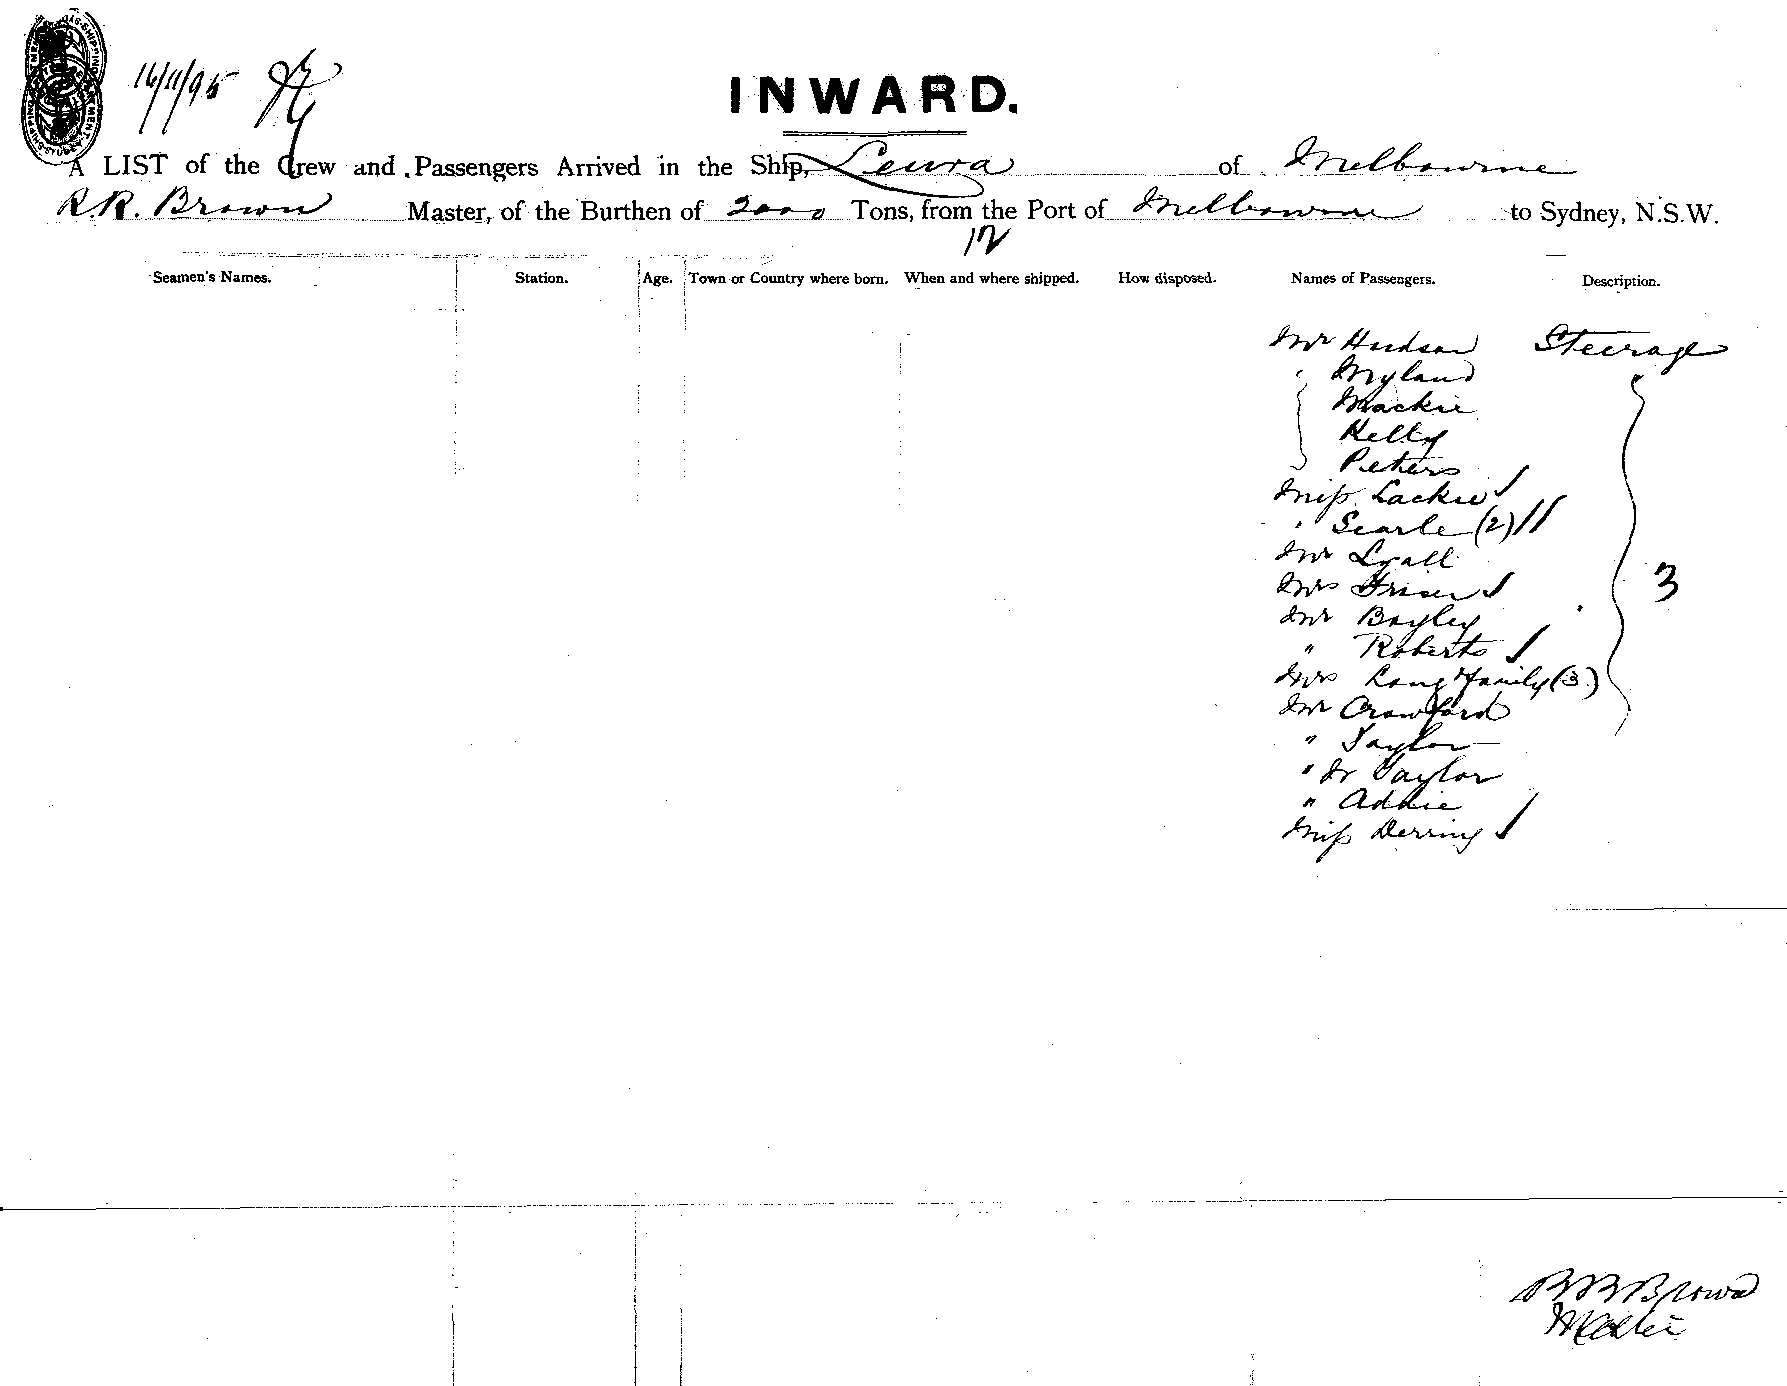 16/11/95
INWARD.
A LIST of the Crew and Passengers Arrived in the Ship, Leura of Melbourne
R.R. Brown Master, of the Burthen of 2000 Tons, from the Port of Melbourne to Sydney, N.S.W.
12
Seamen's Names. Station. Age. Town or Country where born. When and where shipped. How disposed. Names of Passengers. Description.
Mr Hudson Steerage
" Myland
Mackie
Kelly
Peters
Miss Lackie
" Searle (2)
Mr Lyall
Mrs Friser
3
Mr Bayley
" Roberts
Mrs Lang & family (3)
Mr Crawford
" Taylor
" Jr Taylor
" Adkie
Miss Derring
RR Brown
Master